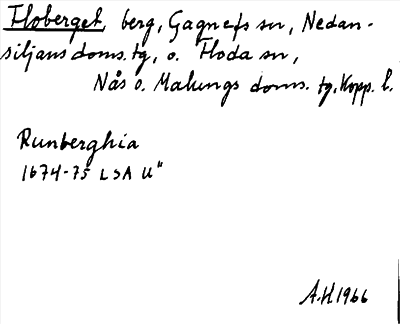 Floberget, berg, Gagnefs sn, Nedan-
siljans doms. tg, o. Floda sn,
Nås o. Malungs doms. tg, Kopp. l.
Runberghia
1674-75 LSA U"
A.H 1966